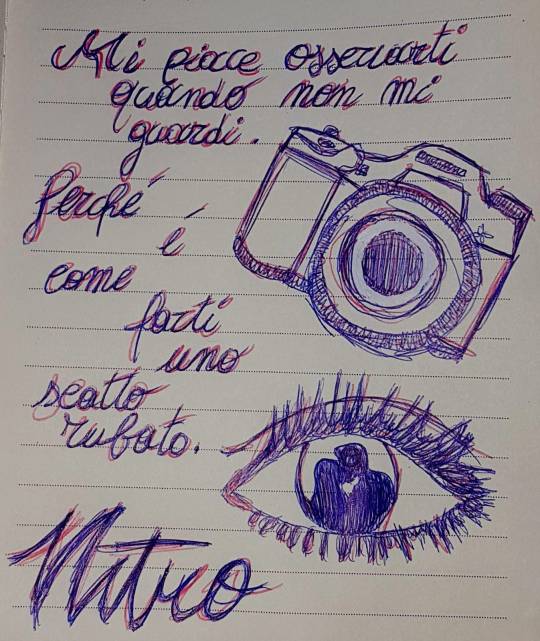 Mi piace osservarti
quando non mi
guardi.
Perché
é
come
farti
uno
scatto
rubato.
Nitro